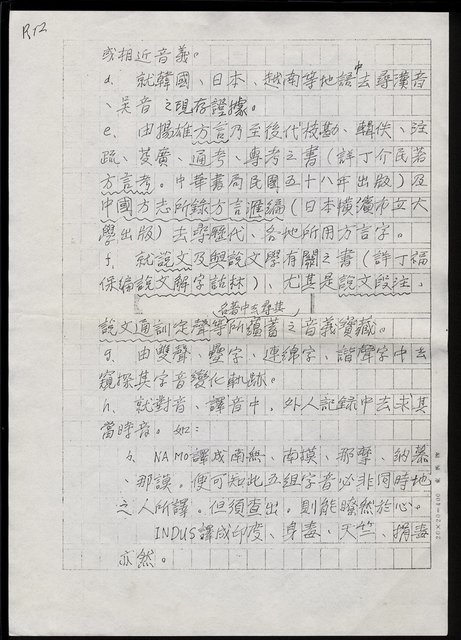 P.12
或相近音義。
d. 就韓國、日本、越南等地語中去尋漢音
、吳音之現存證據。
e. 由揚雄方言乃至後代校勘、輯佚、注
疏、箋廣、通考、專考之書（詳丁介民著
方言考。中華書局民國五十八年出版）及
中國方志所錄方言滙編（日本橫濱市立大
學出版）去尋歷代、各地所用方言字。
f. 就說文及與說文學有關之書（詳丁福
保編說文解字詁林）、尤其是說文段注、
說文通訓定聲等各著中去尋其所蘊蓄之音義寶藏。
g. 由雙聲、疊字、連綿字、諧聲字中去
窺探其字音變化軌跡。
h. 就對音、譯音中，外人記錄中去求其
當時音。如：
NAMO譯成南無、南摸、那摩、納慕
、那謨。便可知此五組字音必非同時地
之人所譯。但須查出。則能瞭然於心。
INDUS譯成印度、身毒、天竺、捐毒
亦然。
20×20=400